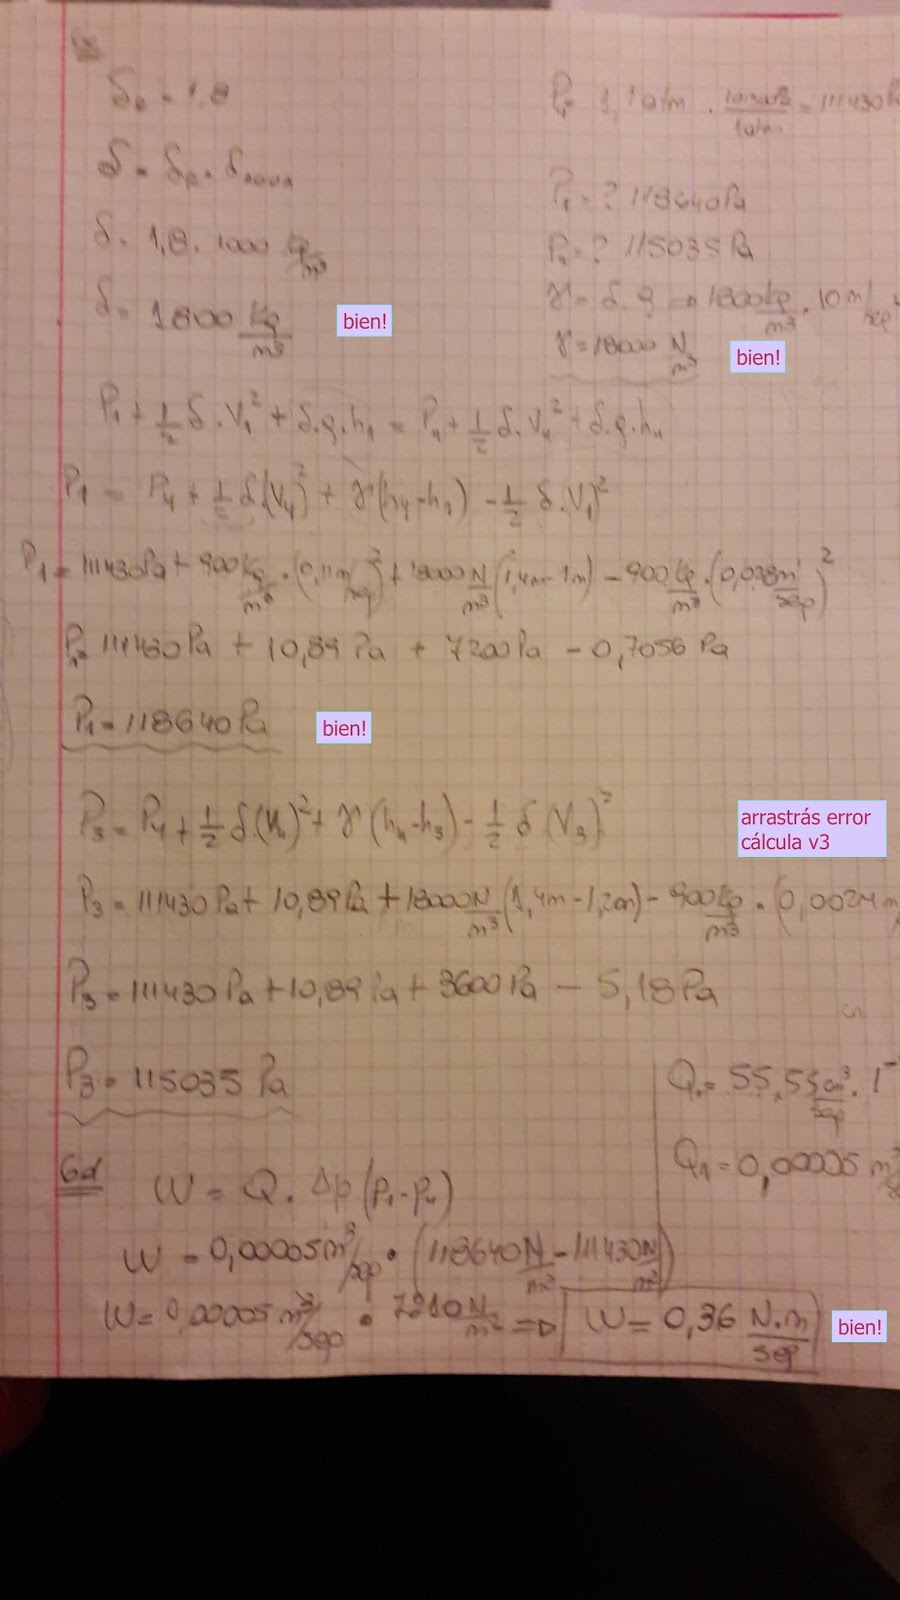 δr = 1.8
δ = δr . δAGUA
δ = 1,8 . 1000 Kg/m³
δ = 1800 Kg/m³
bien!
P4= 1,1 atm . 101300Pa/1atm = 111430Pa
P1 = ? 118640Pa
P3 = ? 115035 Pa
γ = δ.g = 1800 kg/m³ . 10 m/seg²
γ = 18000 N/m³
bien!
P1 + 1/2 δ . V1² + δ.g.h1 = P4 + 1/2 δ.V4² + δ.g.h4
P1 = P4 + 1/2 δ.(V4)² + γ(h4-h1) - 1/2 δ.V1)²
P1 = 111430Pa + 900 kg/m³ . (0,11m/seg)² + 18000 N/m³ (1,4m-1m) - 900 Kg/m³ . (0,028m/seg)²
P1= 111430 Pa + 10,89 Pa + 7200Pa - 0,7056 Pa
P1 = 118640 Pa
bien!
P3 = P4 + 1/2 δ.(V4)² + γ (h4-h3) - 1/2 δ (V3)²
arrastrás error
cálcula v3
P3 = 111430 Pa + 10,89Pa + 18000N/m³ (1,4m-1,2m) - 900 Kg/m³ . (0,0024 m
P3 = 111430 Pa + 10,89 Pa + 3600 Pa - 5,18 Pa
P3 = 115035 Pa
Q1 = 55,55 cm³/seg . 1
Q1 = 0,00005 m³
6d W = Q . Δp (p1-p4)
W = 0,00005 m³/seg . (118640 N/m² - 111430 N/m²)
W = 0,00005 m³/seg . 7210 N/m² => W = 0,36 N.m/seg
bien!